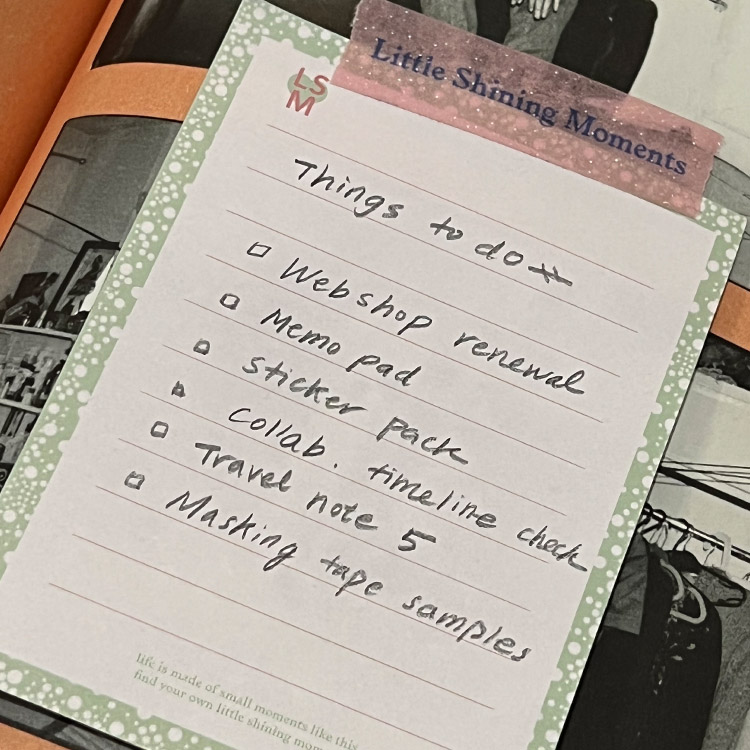 Little Shining Moments
LS
M
Things to do
Webshop renewal
Memo pad
Sticker pack
Collab. timeline check
Travel note 5
Masking tape samples
life is made of small moments like this
find your own little shining